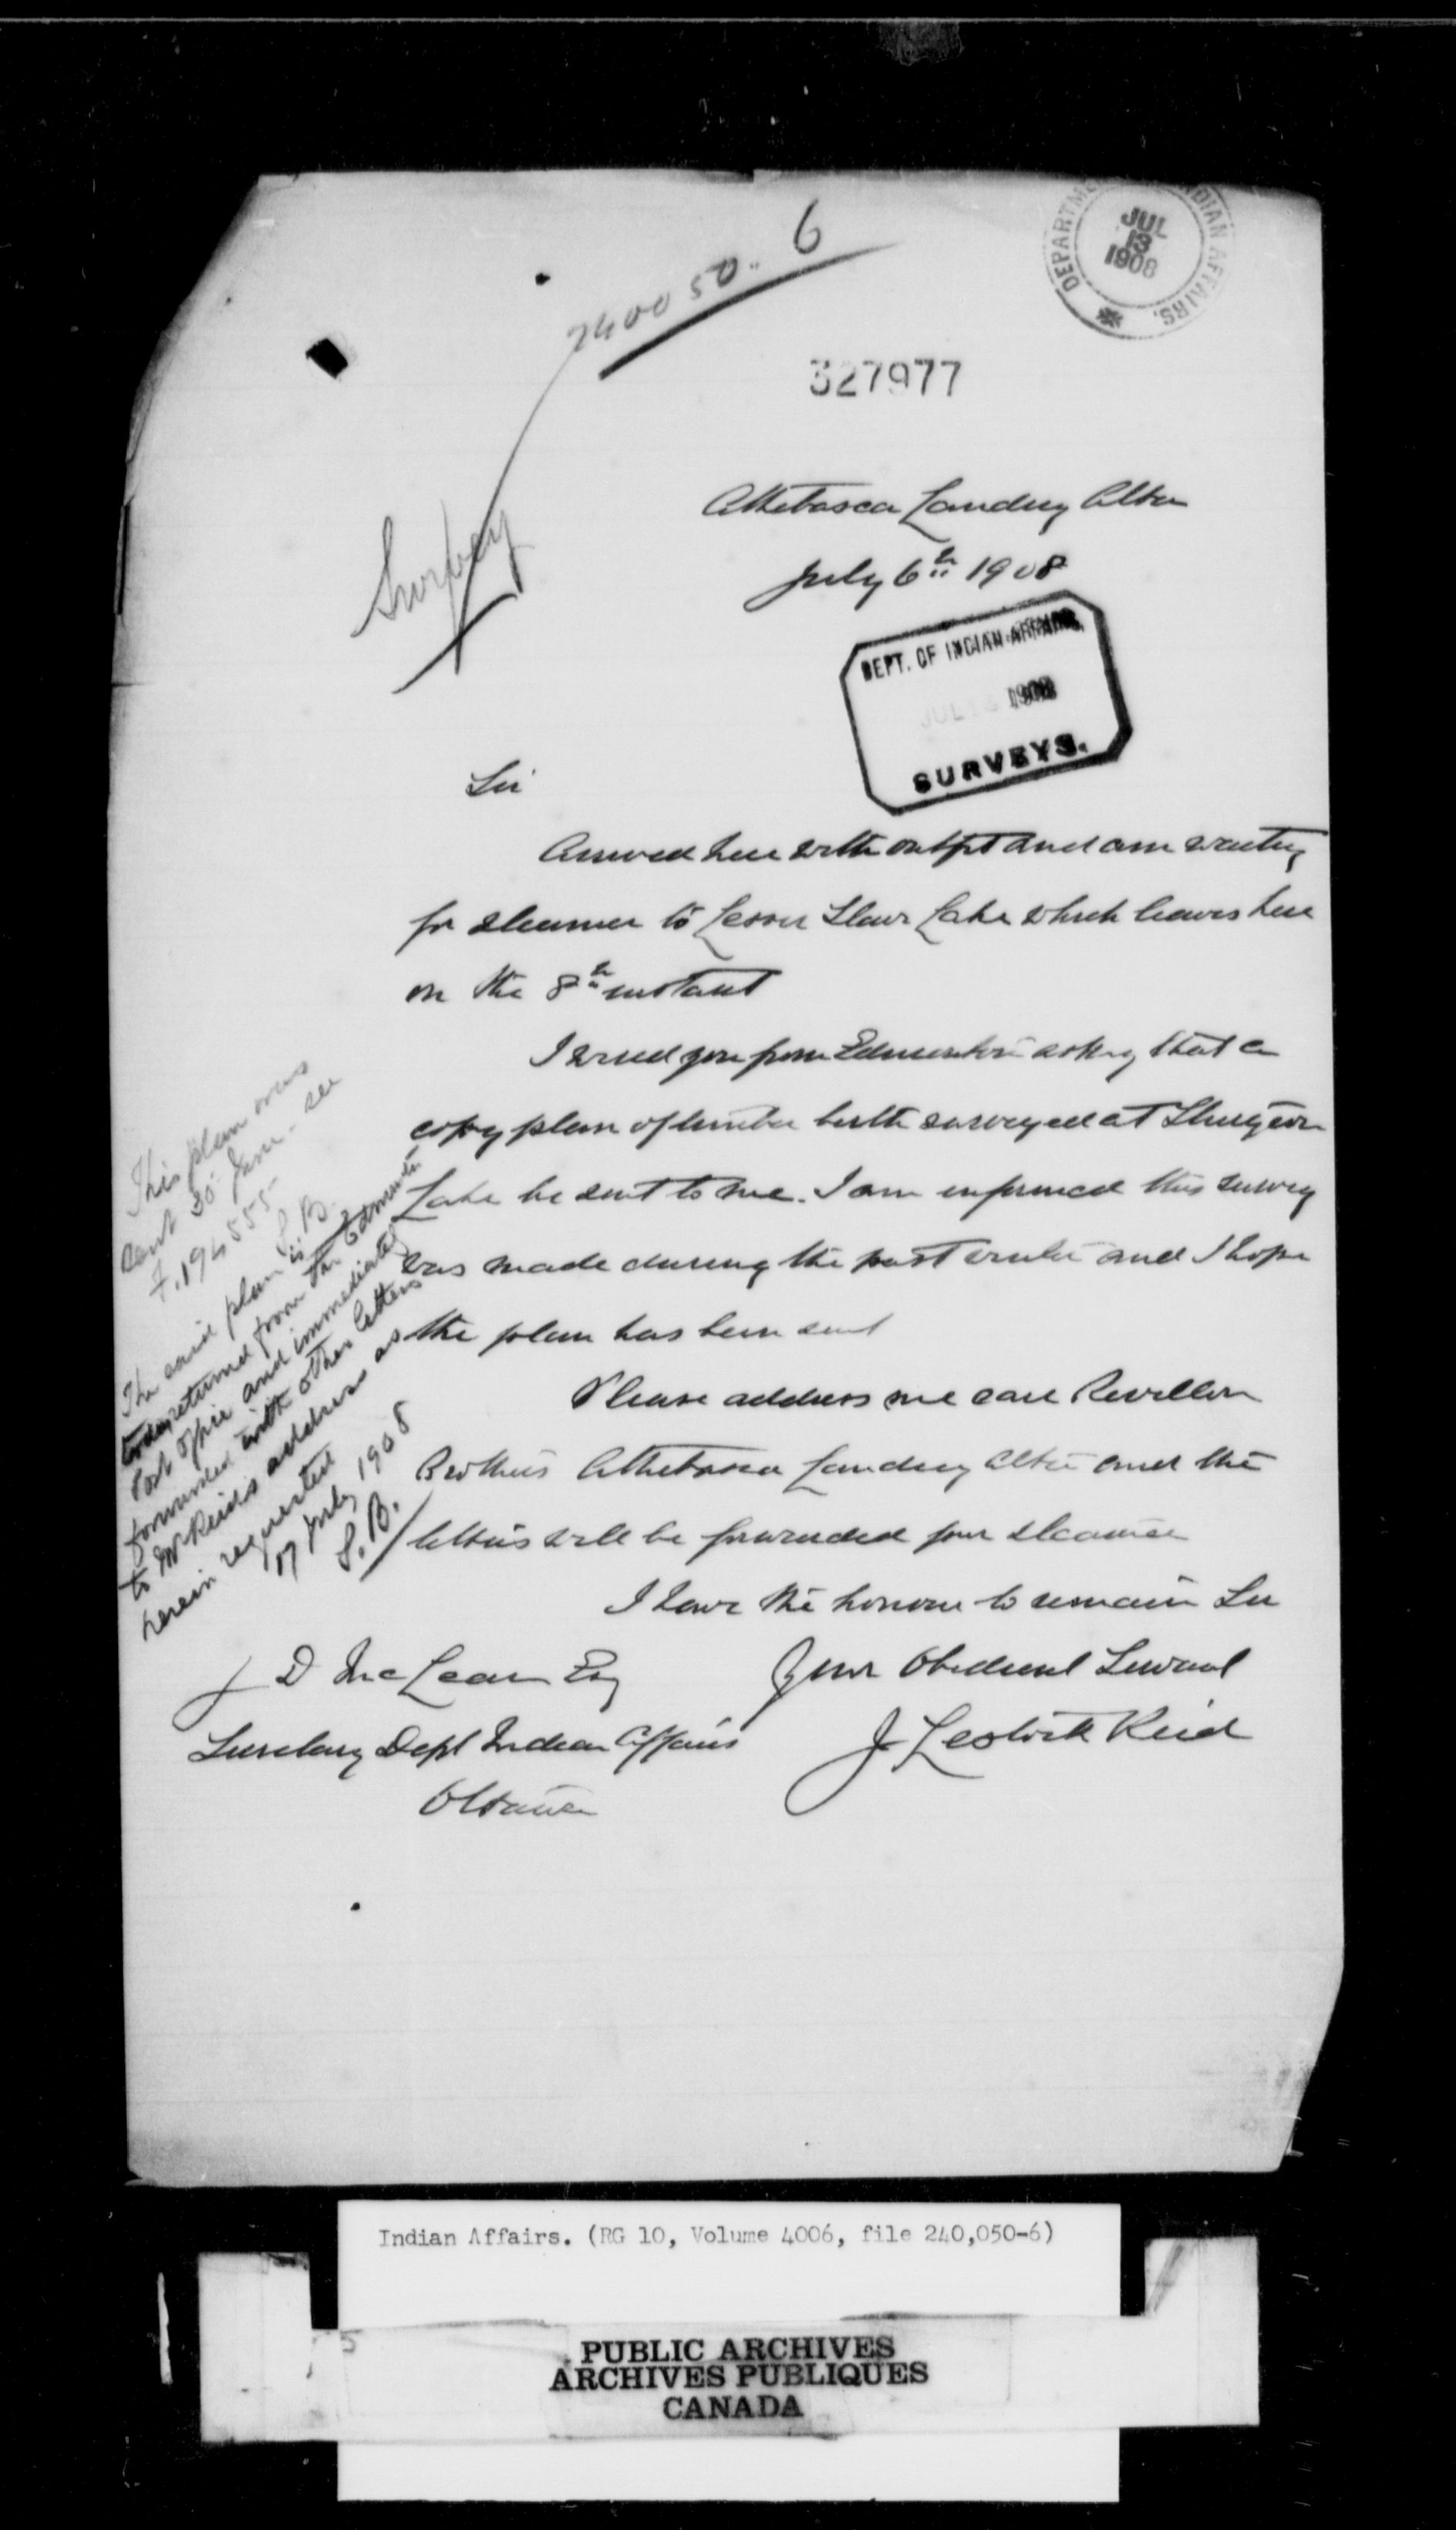 240050-6
DEPARTMENT INDIAN AFFAIRS.
JUL
13
1908
327977
Survey
Athebasca Landing Alta
July 6th 1908
DEPT. OF INDIAN AFFAIRS,
JUL 13 1908
SURVEYS.
Sir
Arrived here with outfit and am waiting
for steamer to Lesser Slave Lake which leaves here
on the 8th instant
I wired you from Edmonton asking that a
copy plan of timber berth surveyed at Sturgeon
Lake be sent to me. I am informed this survey
was made during the past winter and I hope
the plan has been sent
Please address me care Revillon
Brothers Athebasca Landing Alta and the
letters will be forwarded per steamer
I have the honour to remain Sir
Your Obedient Servant
J Lestock Reid
J D McLean Esq
Secretary Dept Indian Affairs
Ottawa
This plan was
sent 30 June. see
F. 194555
S.B.
The said plan is
today returned from the Edmonton
Post office and immediately
forwarded with other letters
to Mr Reid's address as
herein requested
17 July 1908
S.B.
Indian Affairs. (RG 10, Volume 4006, file 240,050-6)
PUBLIC ARCHIVES
ARCHIVES PUBLIQUES
CANADA